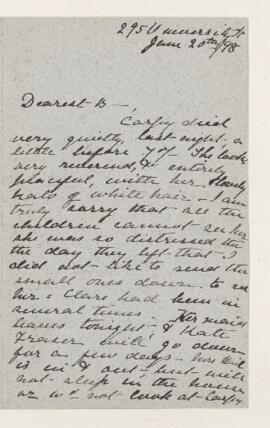 295 University St
June 20th/18
Dearest B—,
Carpy died
very quietly, last night, a
little before 7 - She looks
very reverend, & entirely
peaceful, with her lovely
halo of white hair - I am
truly sorry that all the
children cannot see her
she was so distressed the
the day they left that I
did not like to send the
small ones down to see
her - Clare had been in
several times. Her maid
leaves tonight & Kate
Fraser will go down
for a few days - her
is in & out - but will
not sleep in the house
or not look at Carpy